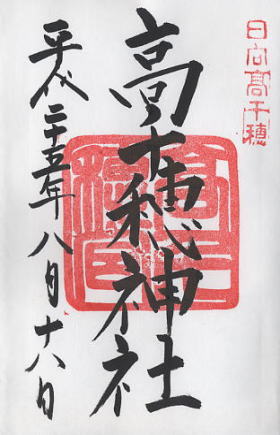 日向高千穂
高千穂神社
平成二十五年八月十八日